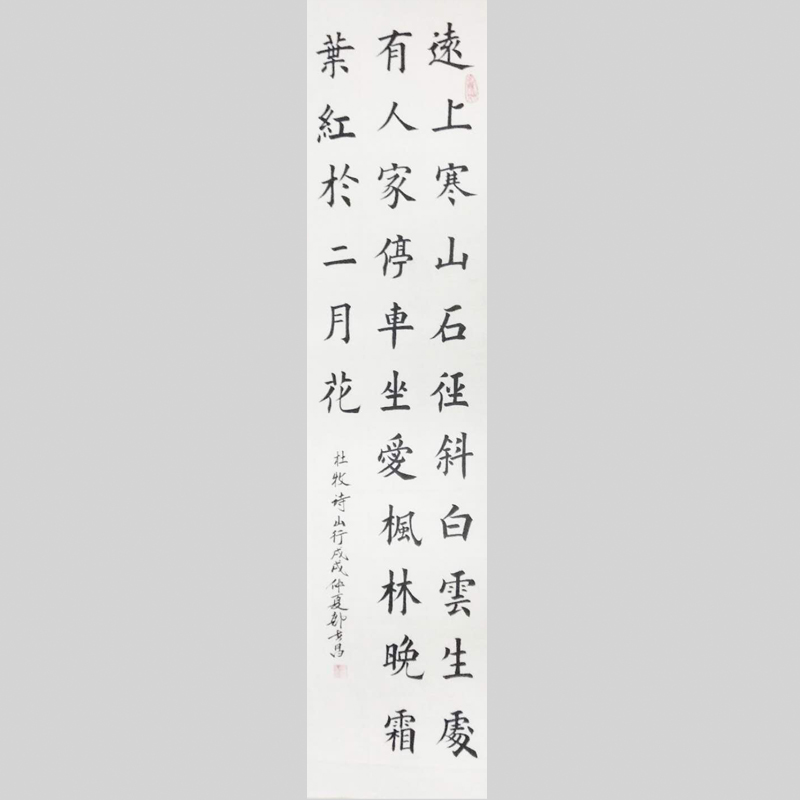 遠上寒山石徑斜白雲生處
有人家停車坐愛楓林晚霜
葉紅於二月花
杜牧诗山行戊戌仲夏